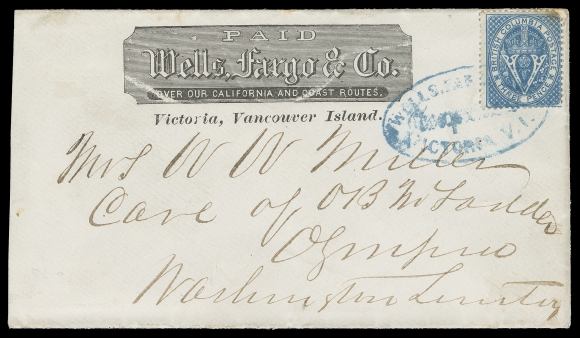 PAID
Wells, Fargo & Co.
OVER OUR CALIFORNIA AND COAST ROUTES.
Victoria, Vancouver Island.
BRITISH COLUMBIA POSTAGE
THREE PENCE
V
WELLS, FAR
VICTORIA V. I.
Mrs W W Miller
Care of O B McFadden
Olympia
Washington Territory